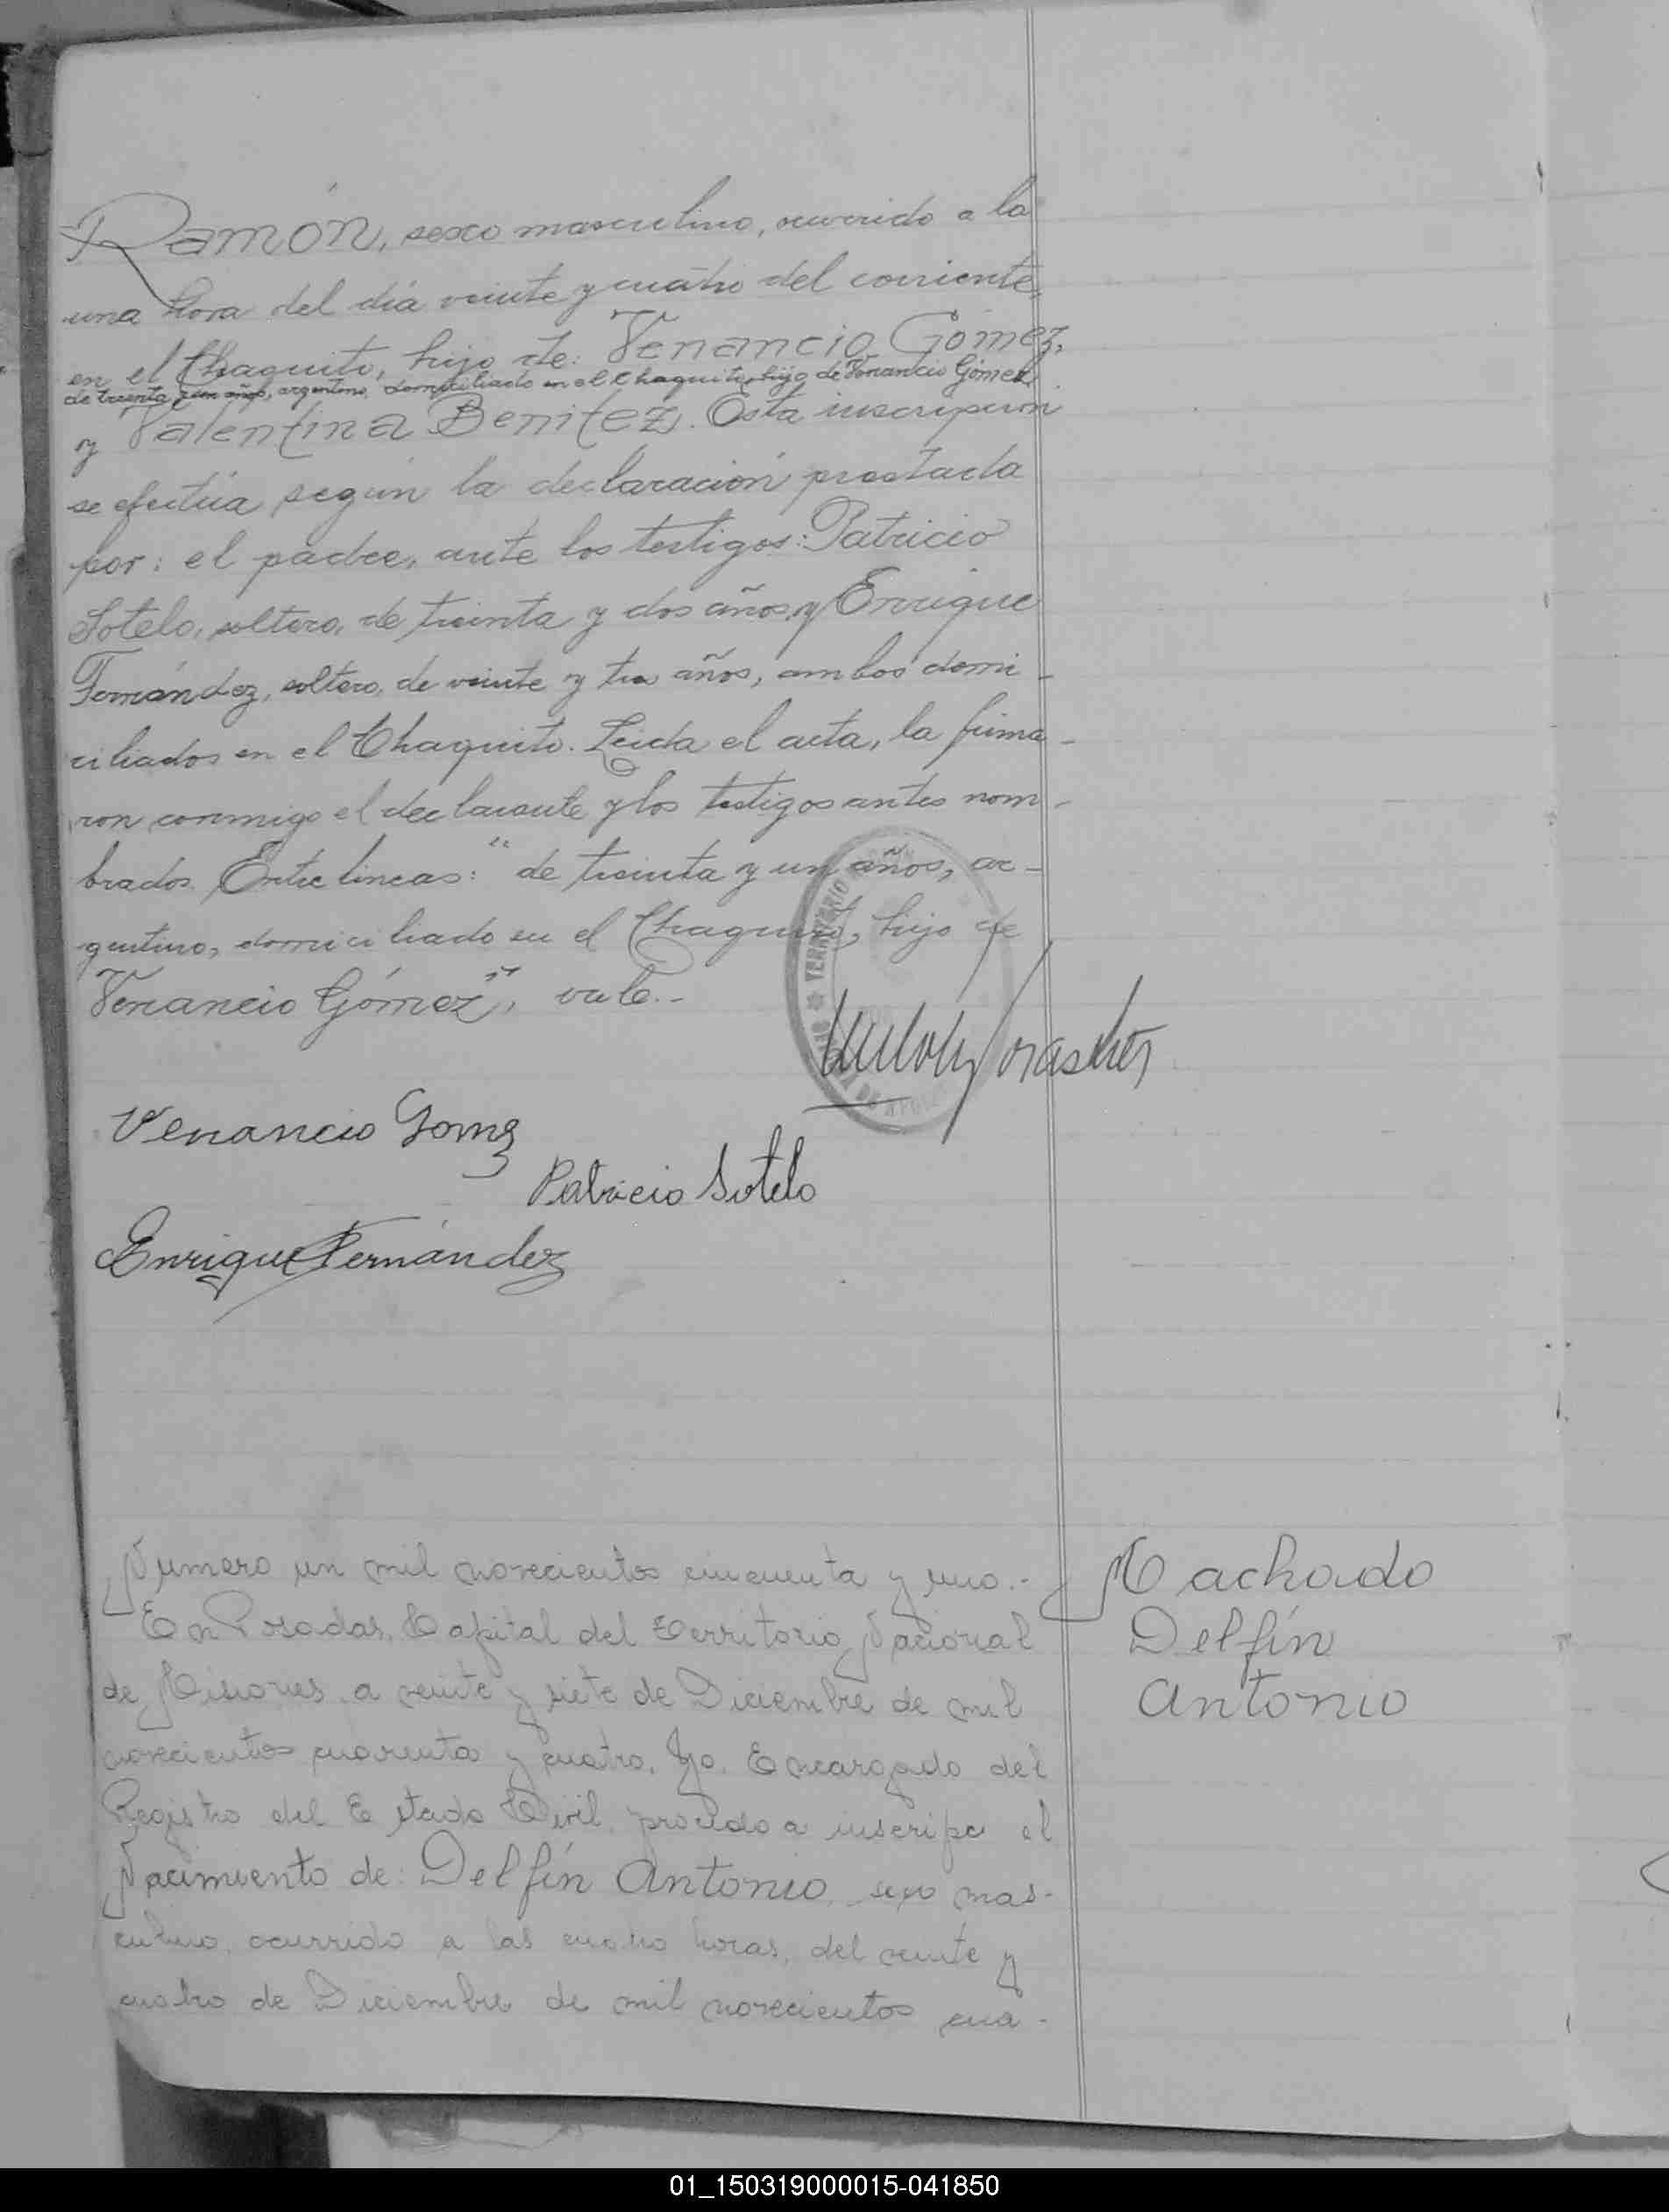 Ramón, sexo masculino, ocurrido a la
una hora del día veinte y cuatro del corriente,
en el Chaquito, hijo de: Venancio Gómez,
de treinta y un años, argentino, domiciliado en el Chaquito, hijo de Venancio Gómez
y Valentina Benitez. Esta inscripción
se efectúa según la declaración prestada
por: el padre, ante los testigos: Patricio
Sotelo, soltero, de treinta y dos años, y Enrique
Fernández, soltero, de veinte y tres años, ambos domi-
ciliados en el Chaquito. Leida el acta, la firma-
ron conmigo el declarante y los testigos antes nom-
brados. Entre lineas: "de treinta y un años, ar-
gentino, domiciliado en el Chaquito, hijo de
Venancio Gómez", vale.-
TERRITORIO
Venancio Gomez
Patricio Sotelo
Enrique Fernández
Numero un mil novecientos cincuenta y uno.-
En Posadas, Capital del Territorio Nacional
de Misiones, a veinte y siete de Diciembre de mil
novecientos cuarenta y cuatro, Yo, Encargado del
Registro del Estado Civil, procedo a inscribir el
Nacimiento de: Delfín Antonio, sexo mas-
culino, ocurrido a las cuatro horas, del veinte y
cuatro de Diciembre de mil novecientos cua-
Machado
Delfín
Antonio
01_150319000015-041850